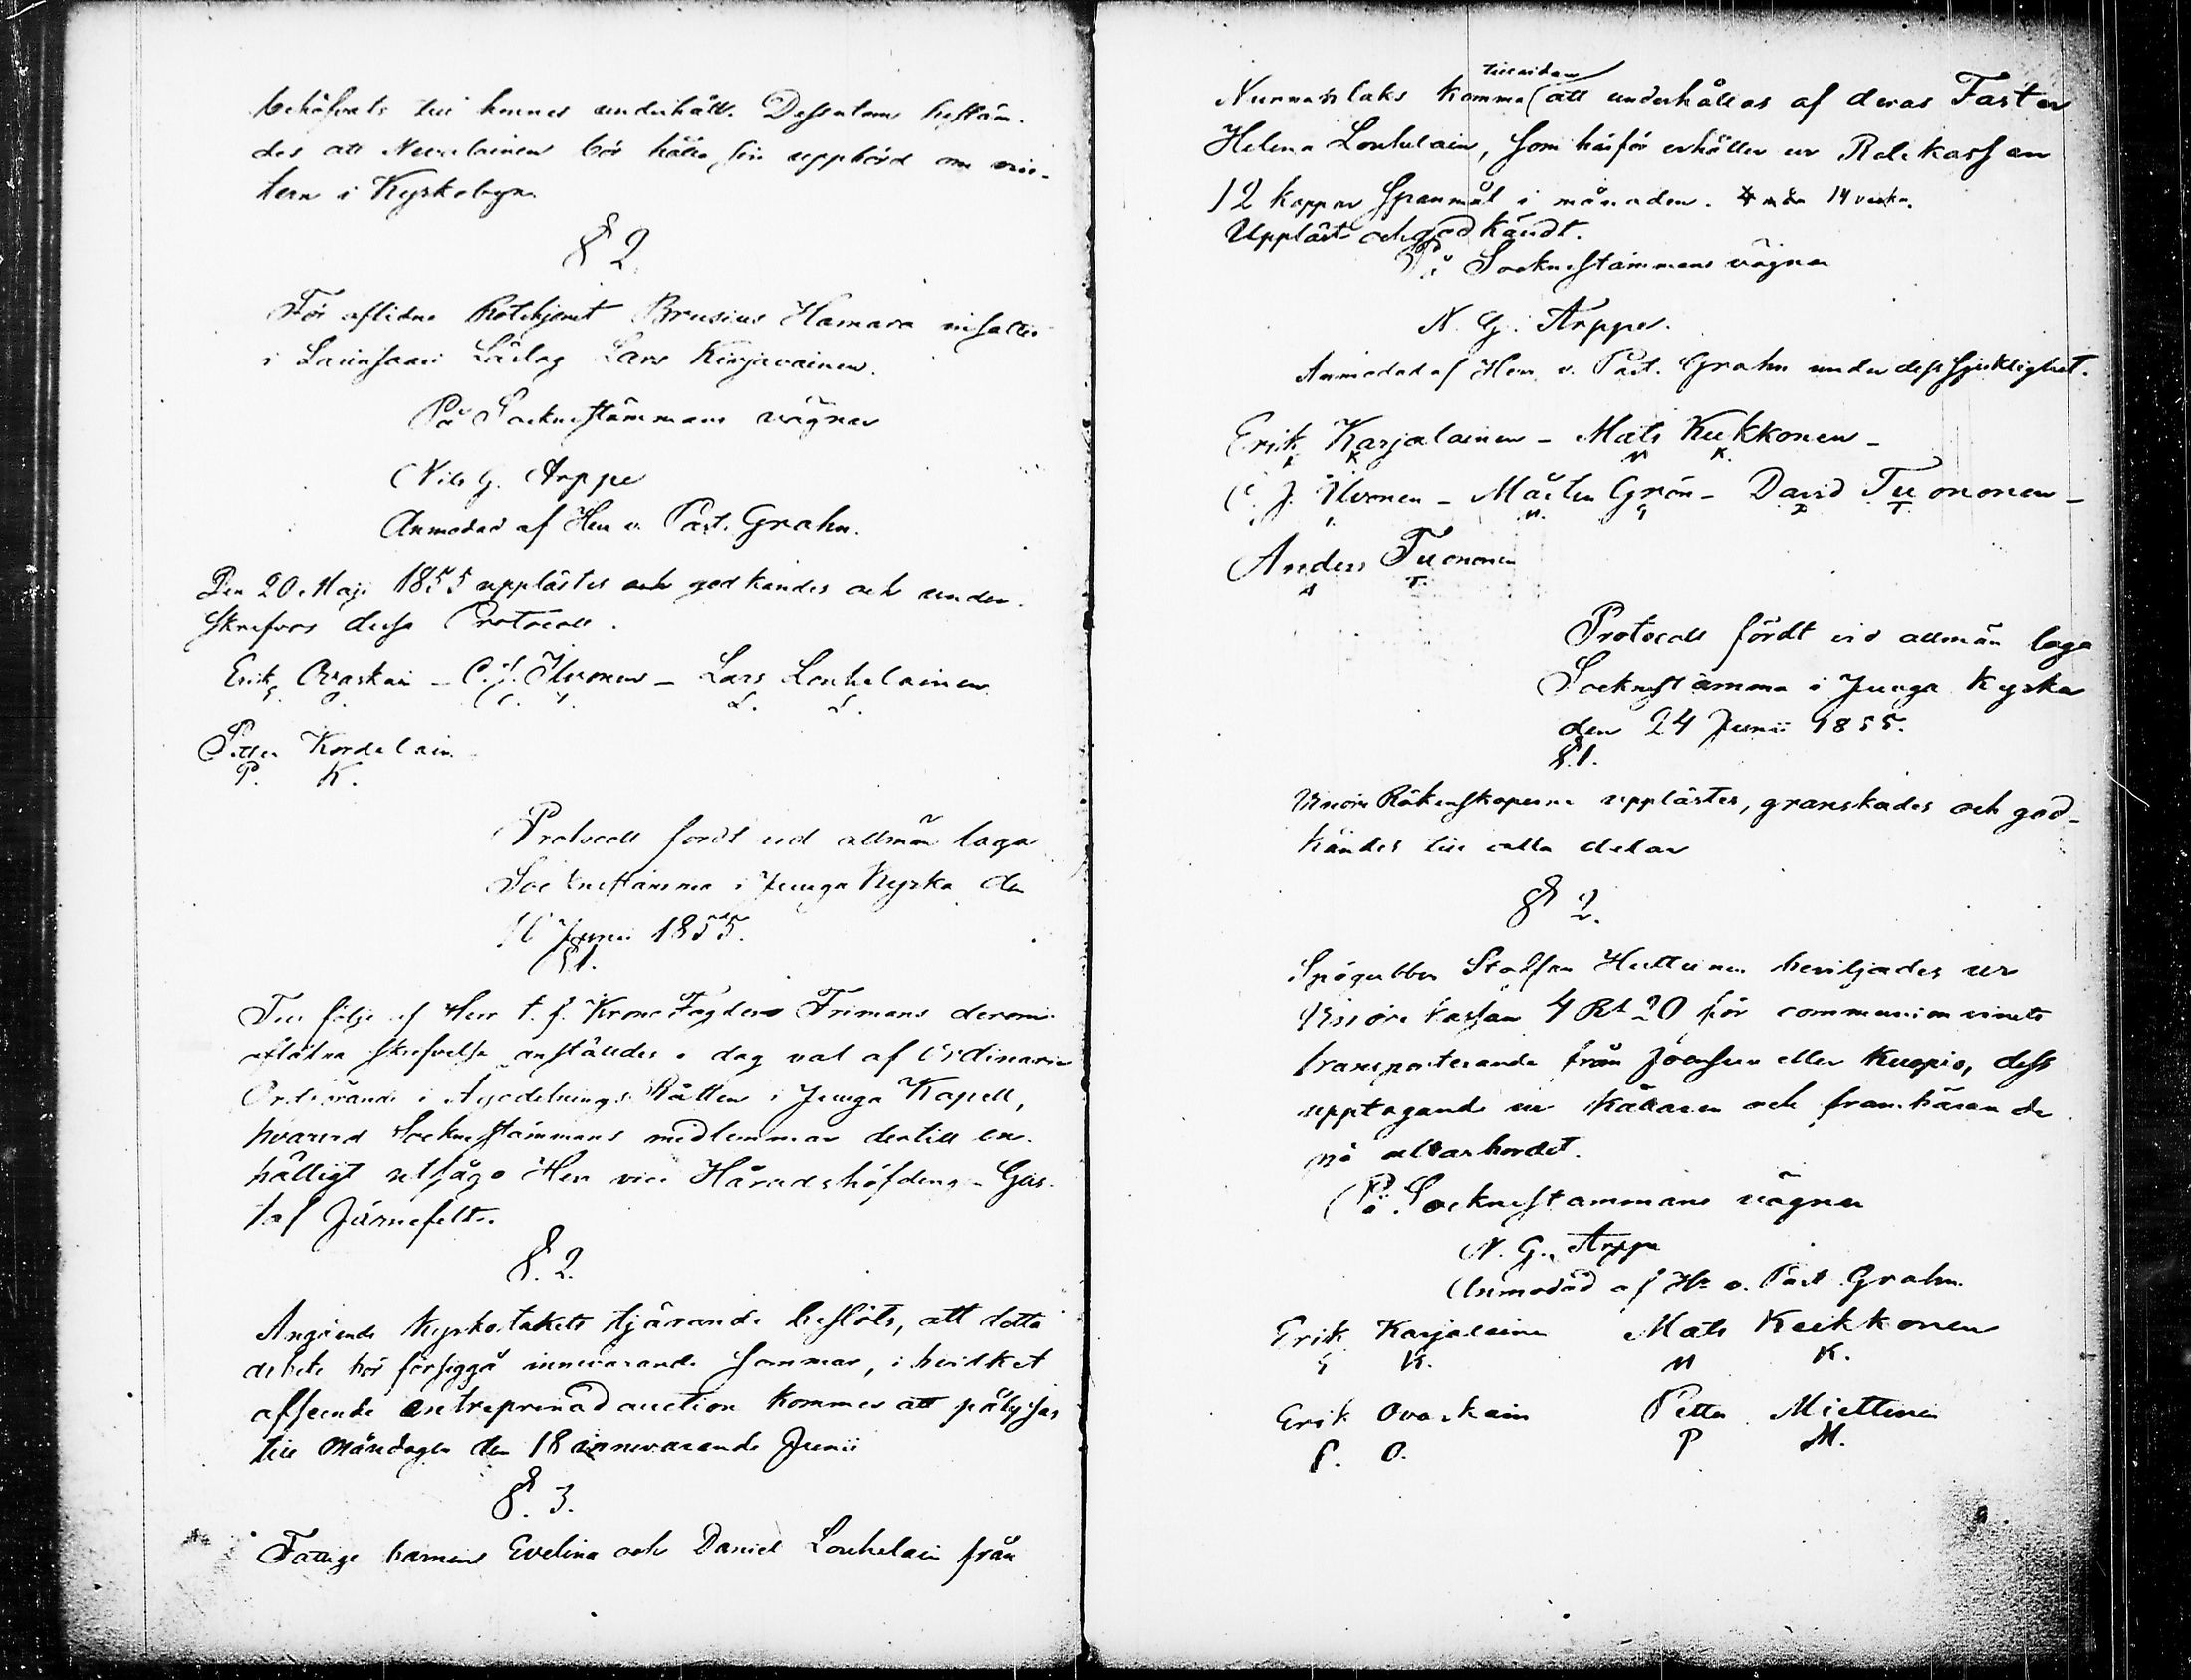 behöfvats till hennes underhåll. Dessutom bestäm-
des att Nevalainen bör hålla sin uppbörd om vin-
tern i Kyrkobyn.
§ 2.
För aflidne Rotehjonet Brusius Hamara insattes
i Larinsaari Läslag Lars Kinjavainen.
På Sockenstämmans vägnar
Nils G. Arppe
Anmodad af Herr v. Past. Grahn.
Den 20 Maji 1855 upplästes och godkändes och under-
skrefvos dessa Protocoll.
Erik Ovaskain – C. J. Ilvonen – Lars Louhelainen
E. O. C. I. L. L.
Petter Kordelain
P. K.
Protocoll fördt vid allmän laga
Socknestämma i Juuga Kyrka den
10 Junii 1855.
§ 1.
Till följe af Herr t. f. Krono Fogden Frimans derom
aflåtna skrifvelse anställdes i dag val af Ordinarie
Ordförande i Egodelnings Rätten i Juuga Kapell,
hvarvid Socknestämmans medlemmar dertill en-
hälligt utsågo Herr vice Häradshöfding Gus-
taf Järnefelt.
§. 2.
Angående Kyrkotakets tjärande beslöts, att detta
arbete bör försiggå innevarande sommar, i hvilket
afseende entreprenad auction kommer att pålysas
till Måndagen den 18 innevarande Junii
§. 3.
Fattige barnens Evelina och Daniel Louhelain från
Nunnanlaks komma tillsvidare att underhållas af deras Faster
Helena Louhelain, som härför erhåller ur Rotekassan
12 kappar Spanmål i månaden.
Uppläst och godkändt.
På Socknestämmans vägnar
N. G. Arppe.
Anmodad af Herr v. Past. Grahn under dess sjuklighet.
Erik Karjalainen – Mats Kukkonen –
E K M K.
C. J. Ilvonen – Mårten Grön – David Tuononen –
C. I. M. G D T
Anders Tuononen
A T.
Protocoll fördt vid allmän laga
Socknestämma i Juuga Kyrka
den 24 Junii 1855.
§. 1.
Räkenskaperne upplästes, granskades och god-
kändes till alla delar
§ 2.
Spögubben Staffan Huttunen beviljades ur
kassan 4 Rbl 20 för communion vinets
transporterande från Joensuu eller Kuopio, dess
upptagande ur källaren och frambärande
på altarbordet.
På Socknestämmans vägnar
N. G. Arppe
Anmodad af Hr v. Past. Grahn.
Erik Karjalainen Mats Kukkonen
E K. M K.
Erik Ovaskain Petter Miettinen
E. O. P M.